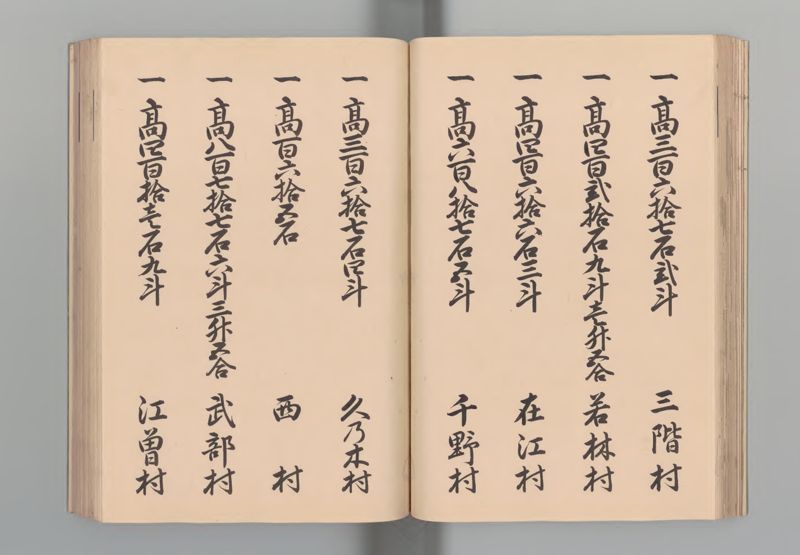 一 高三百六拾七石弐斗 三階村
一 高四百弐拾石九斗壱升五合 若林村
一 高四百六拾六石三斗 在江村
一 高六百八拾七石五斗 千野村
一 高三百六拾七石四斗 久乃木村
一 高百六拾五石 西村
一 高八百七拾七石六斗三升五合 武部村
一 高四百拾壱石九斗 江曽村